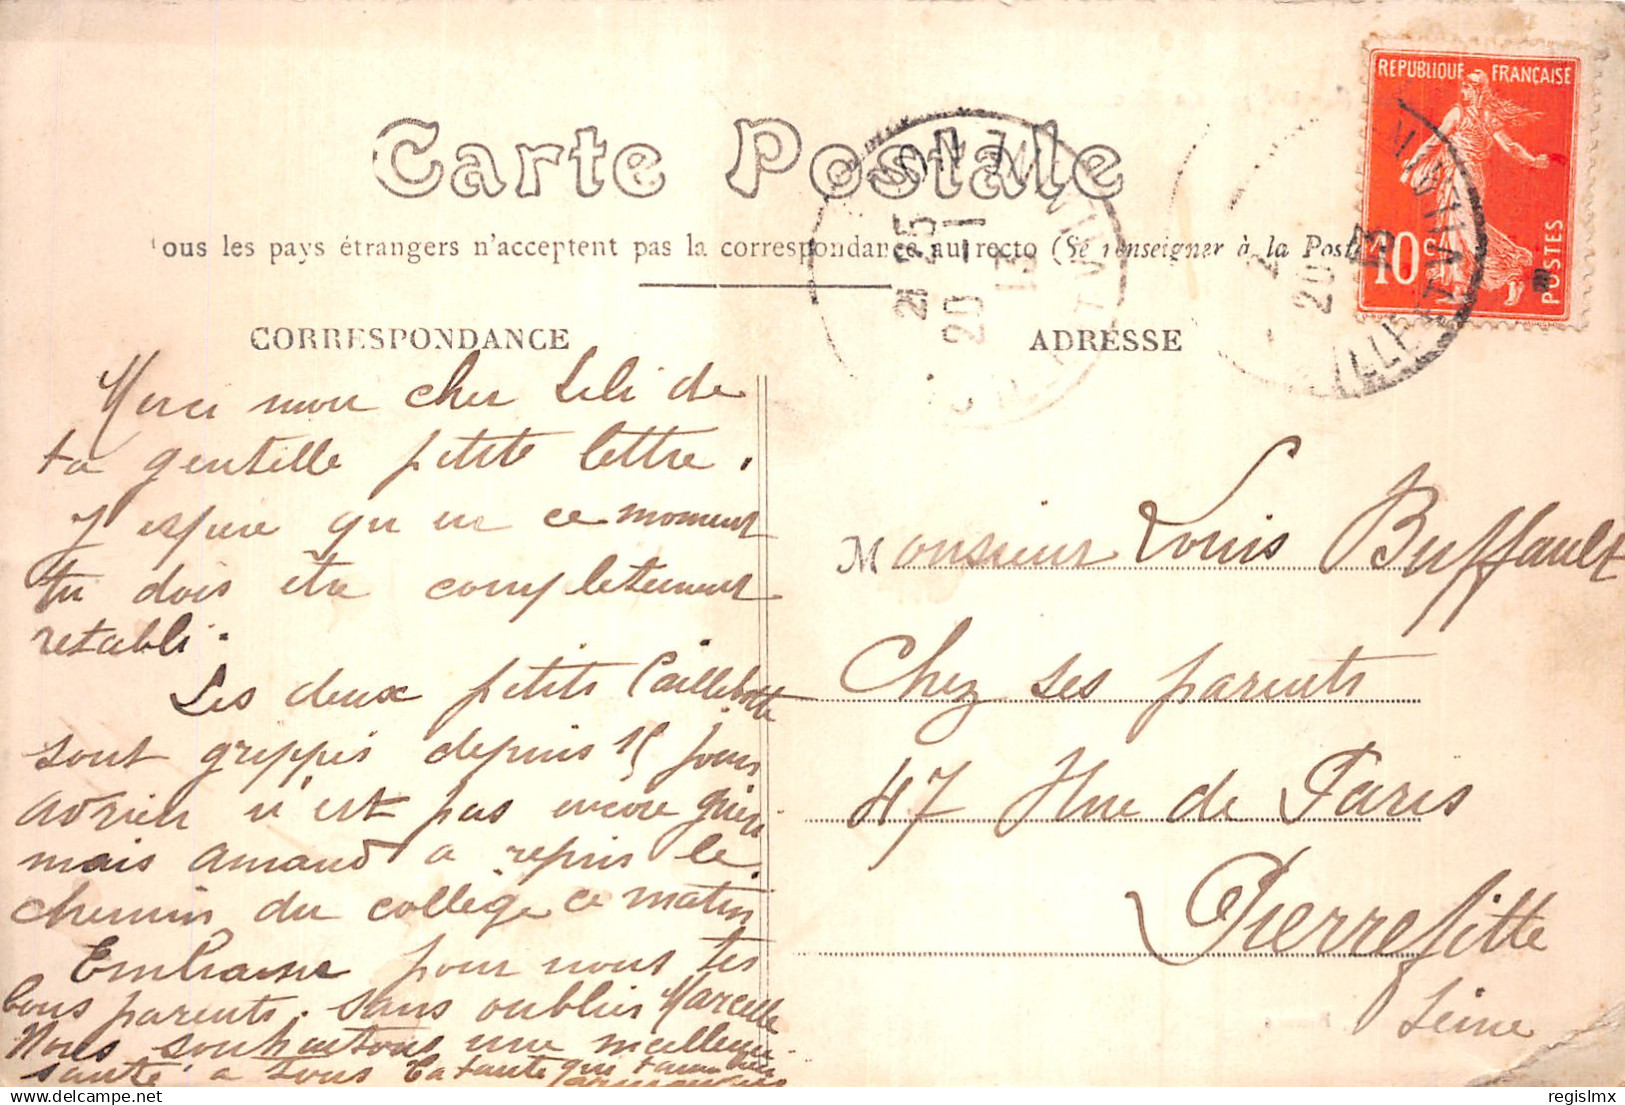 Carte Postale
Tous les pays étrangers n'acceptent pas la correspondance au recto (Se renseigner à la Poste
REPUBLIQUE FRANÇAISE
10 c
POSTES
21 25
20 - 1
13
20
13
CORRESPONDANCE
ADRESSE
Merci mon cher Lili de
ta gentille petite lettre.
J espere qu en ce moment
tu dois être completement
retabli.
Les deux petits Caillebotte
sont grippés depuis 15 jours
Adrien n'est pas encore guéri
mais Amand a repris le
chemin du collège ce matin
Embrasse pour nous tes
bons parents. sans oublier Marcelle
Nous souhaitons une meilleure
santé a tous ta tante qui t'aime bien
Monsieur Louis Buffault
Chez ses parents
47 Rue de Paris
Pierrefitte
Seine
delcampe.net
regislmx